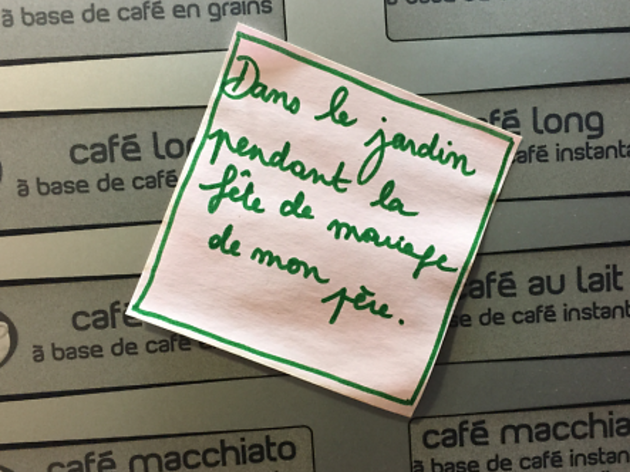 à base de café en grains
à base de café
Dans le jardin
pendant la
fête de mariage
de mon père.
café lo
à base de café
café long
café instanta
café
à base de café
café au lait
se de café instant
café macchiato
café macchia
à base de café instan